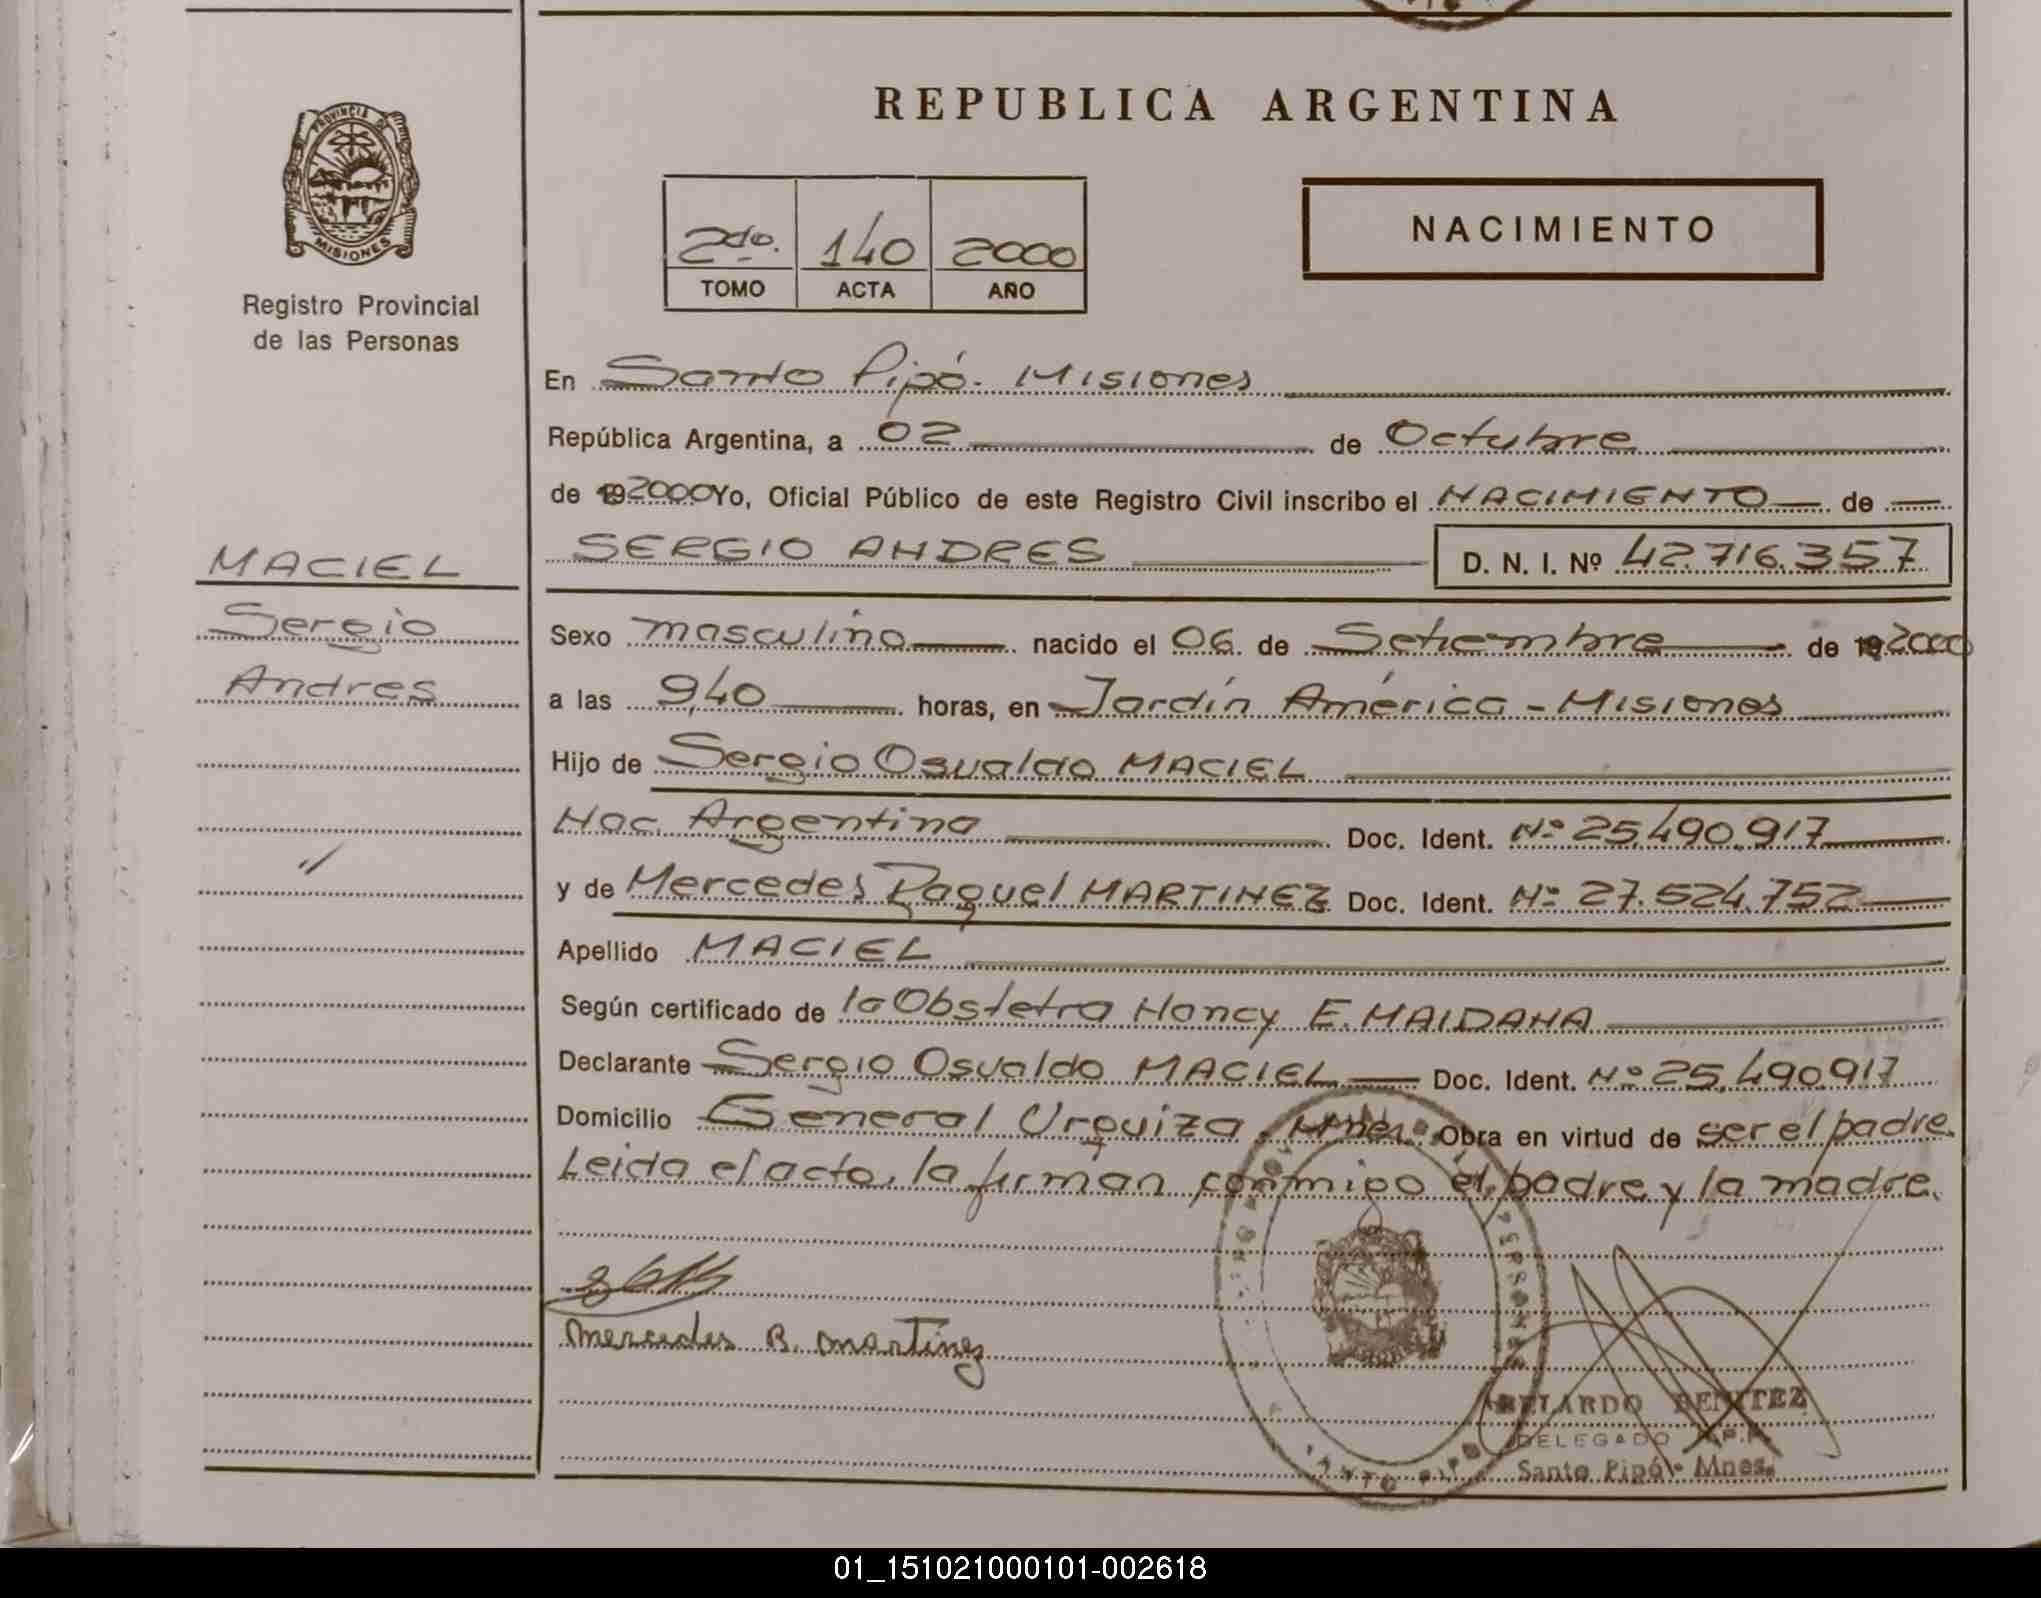 REPUBLICA ARGENTINA
PROVINCIA DE
MISIONES
Registro Provincial
de las Personas
2do. 140 2000
TOMO ACTA AÑO
NACIMIENTO
En Santo Pipó - Misiones
República Argentina, a 02 de Octubre
de 192000 Yo, Oficial Público de este Registro Civil inscribo el NACIMIENTO de
MACIEL
SERGIO ANDRES D. N. I. Nº 42.716.357
Sergio
Sexo masculino nacido el 06 de Setiembre de 192000
Andres
a las 9,40 horas, en Jardín América - Misiones
Hijo de Sergio Osvaldo MACIEL
Nac. Argentina Doc. Ident. Nº 25.490.917
y de Mercedes Raquel MARTINEZ Doc. Ident. Nº 27.524.752
Apellido MACIEL
Según certificado de la Obstetra Nancy E. MAIDANA
Declarante Sergio Osvaldo MACIEL Doc. Ident. Nº 25.490.917
Domicilio General Urquiza - Mnes. Obra en virtud de ser el padre.
Leida el acta, la firman conmigo el padre y la madre.
Mercedes R. Martinez
ABELARDO BENITEZ
DELEGADO R.P.P.
Santo Pipó - Mnes.
SANTO PIPO
01_151021000101-002618